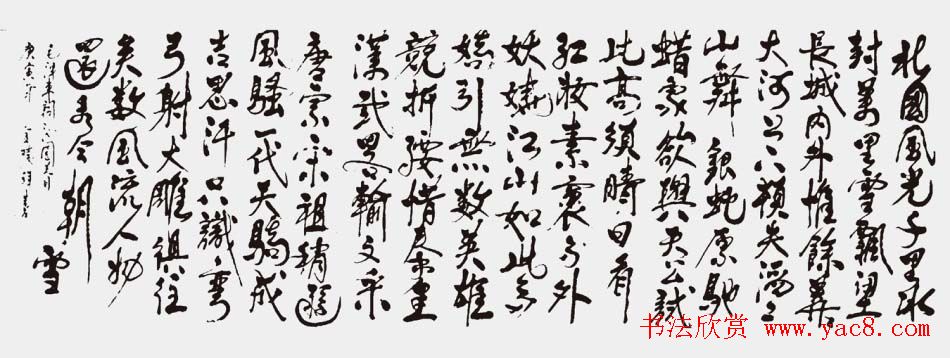 北國風光千里冰
封萬里雪飄望
長城内外惟餘莽
大河上下頓失滔々
山舞銀蛇原馳
蜡象欲與天公試
比高須晴日看
紅妝素裹分外
妖嬈江山如此多
嬌引無數英雄
競折腰惜秦皇
漢武畧輸文采
唐宗宋祖稍遜
風騷一代天驕成
吉思汗只識彎
弓射大雕俱往
矣數風流人物
還看今朝
雪
毛澤東詞沁園春
庚寅年
书法欣赏 www.yac8.com